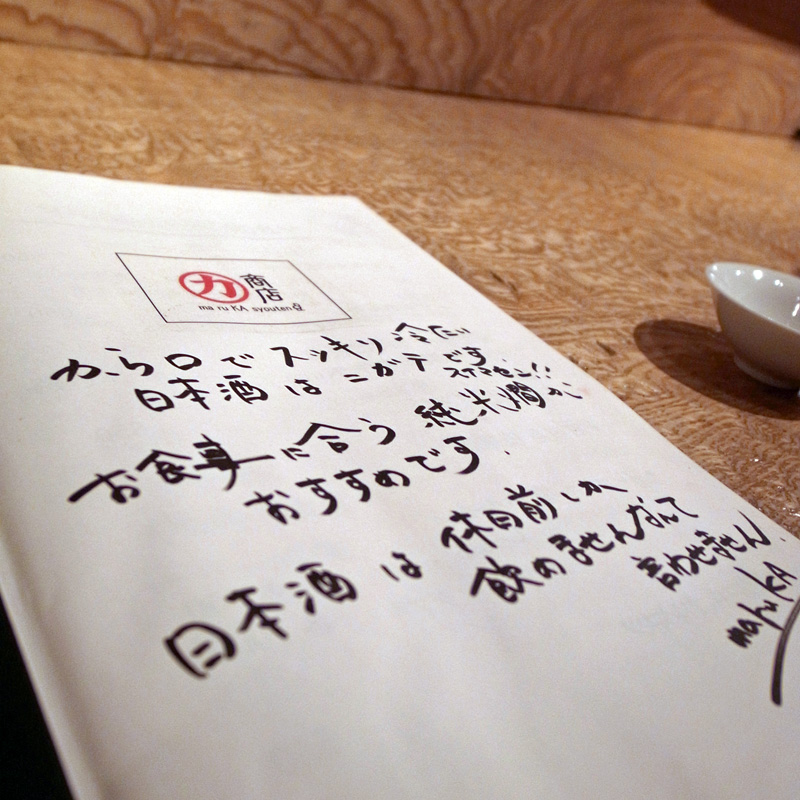 カ 商店
ma ru KA syouten
から口でスッキリ冷たい
日本酒はニガテです。
スイマセン!!
お食事に合う純米燗が
おすすめです.
日本酒は休日前しか
飲めませんなんて
言わせません.
maru KA